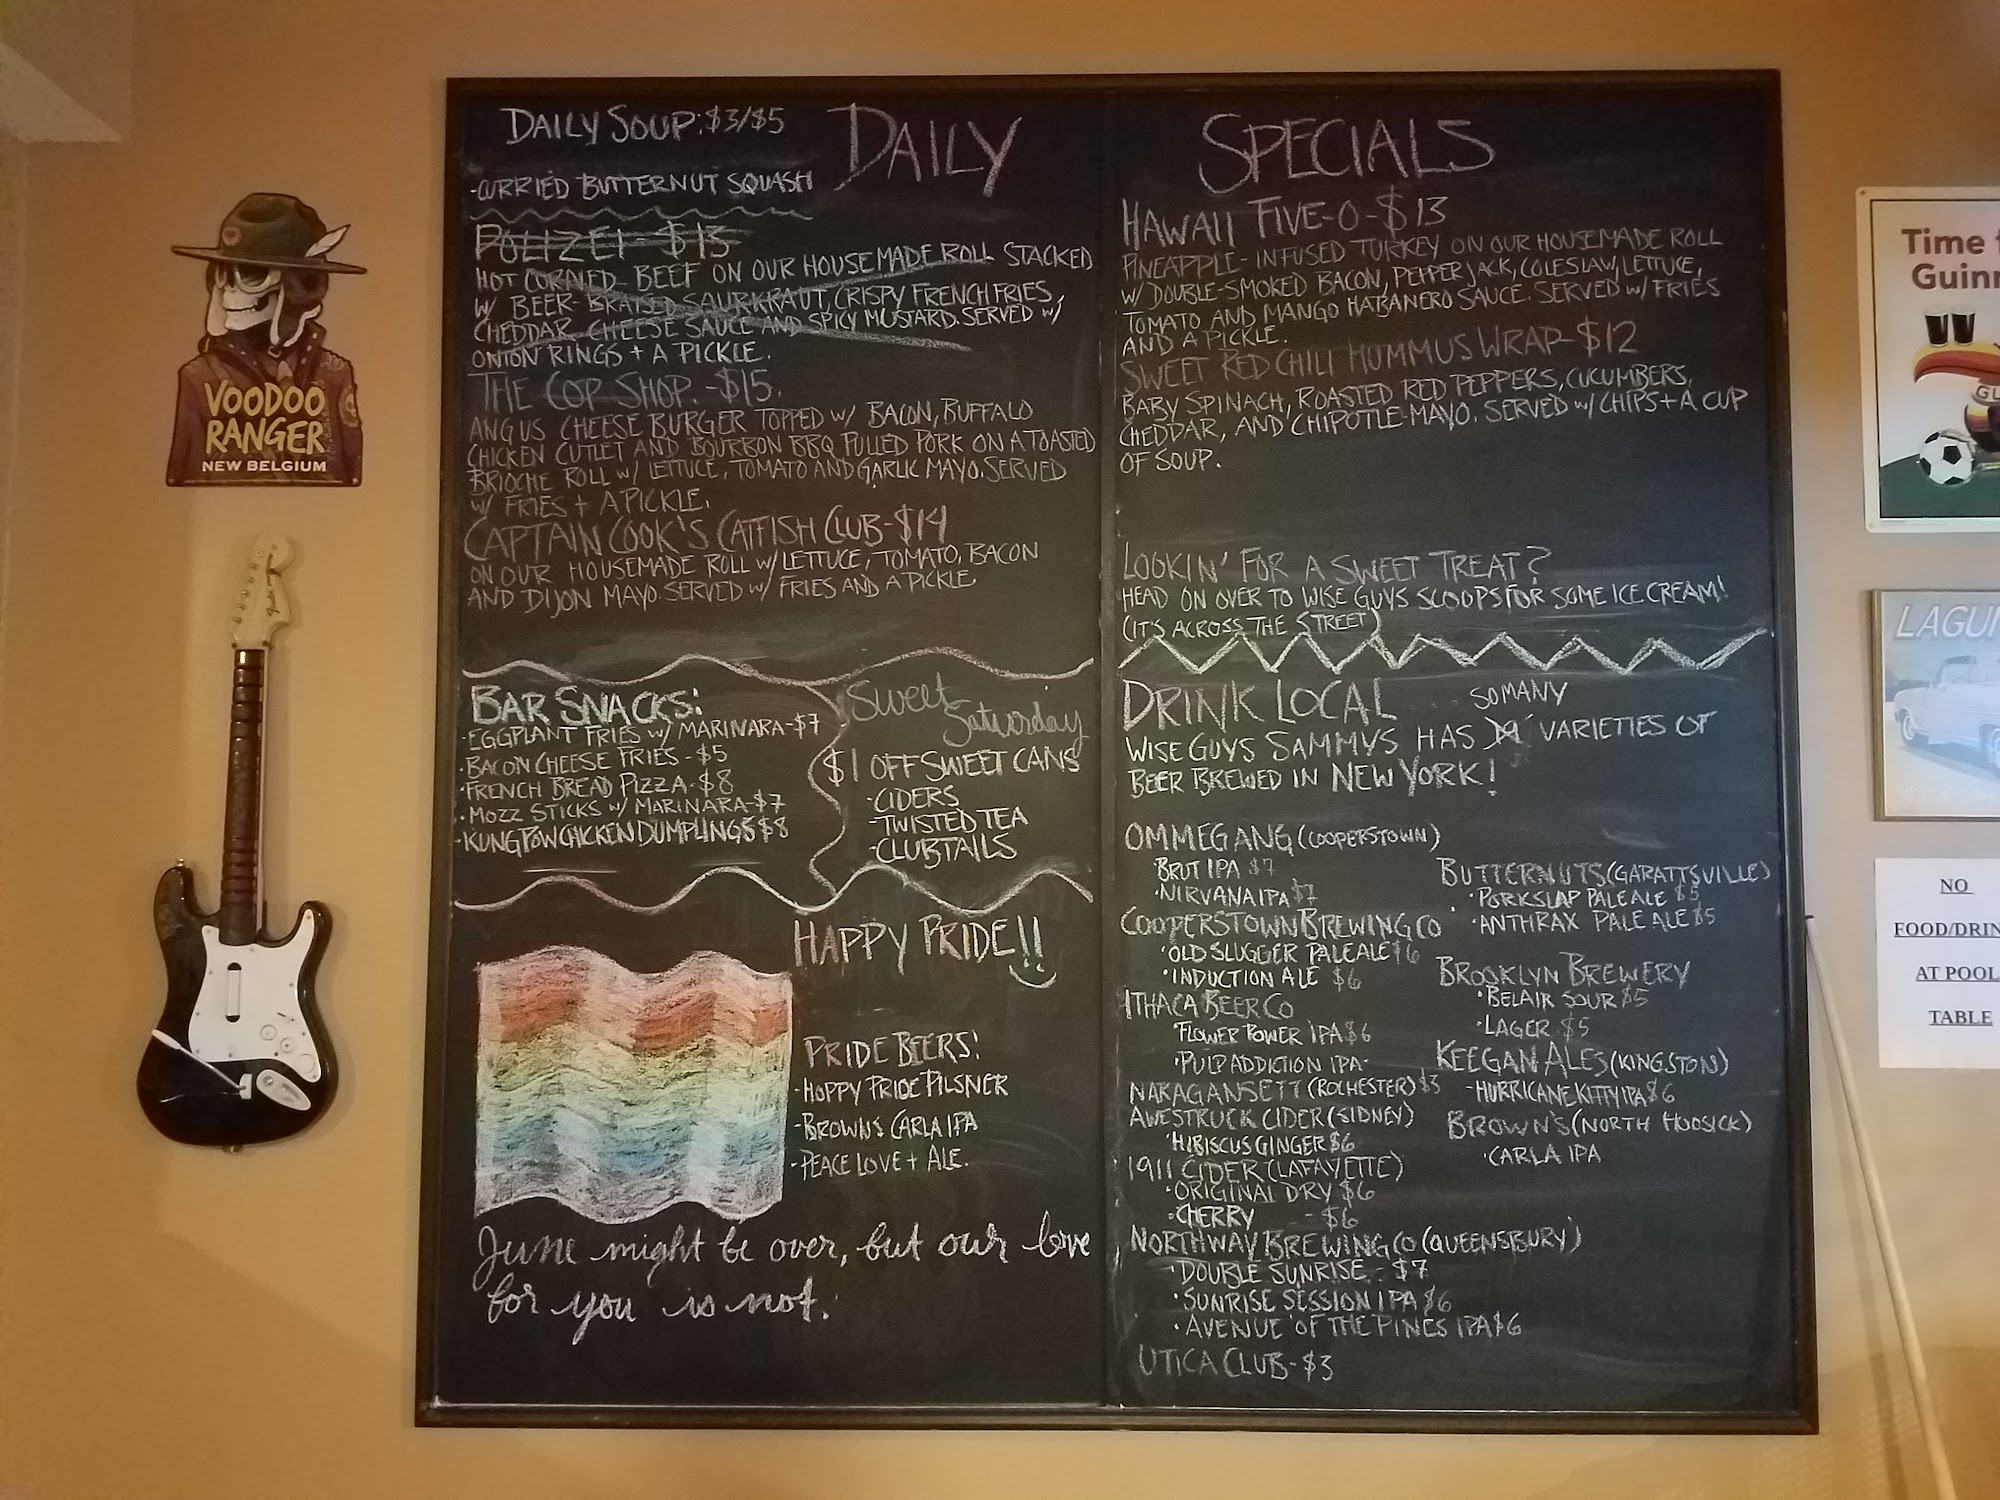 DAILY SPECIALS
DAILY SOUP: $3/$5
-CURRIED BUTTERNUT SQUASH
POLIZEI - $13
HOT CORNED-BEEF ON OUR HOUSEMADE ROLL STACKED
W/ BEER-BRAISED SAURKRAUT, CRISPY FRENCH FRIES,
CHEDDAR CHEESE SAUCE AND SPICY MUSTARD. SERVED W/
ONION RINGS + A PICKLE.
THE COP SHOP. -$15.
ANGUS CHEESE BURGER TOPPED W/ BACON, BUFFALO
CHICKEN CUTLET AND BOURBON BBQ PULLED PORK ON A TOASTED
BRIOCHE ROLL W/ LETTUCE, TOMATO AND GARLIC MAYO. SERVED
W/ FRIES + A PICKLE.
CAPTAIN COOK'S CATFISH CLUB-$14
ON OUR HOUSEMADE ROLL W/ LETTUCE, TOMATO, BACON
AND DIJON MAYO. SERVED W/ FRIES AND A PICKLE
BAR SNACKS:
·EGGPLANT FRIES W/ MARINARA-$7
·BACON CHEESE FRIES-$5
·FRENCH BREAD PIZZA-$8
·MOZZ STICKS W/ MARINARA-$7
·KUNG POW CHICKEN DUMPLINGS $8
Sweet
Saturday
$1 OFF SWEET CANS
-CIDERS
-TWISTED TEA
-CLUBTAILS
HAPPY PRIDE!!
PRIDE BEERS:
-HOPPY PRIDE PILSNER
-BROWNS CARLA IPA
-PEACE LOVE + ALE.
June might be over, but our love
for you is not.
HAWAII FIVE-O-$13
PINEAPPLE-INFUSED TURKEY ON OUR HOUSEMADE ROLL
W/ DOUBLE-SMOKED BACON, PEPPER JACK, COLESLAW, LETTUCE,
TOMATO AND MANGO HABANERO SAUCE. SERVED W/ FRIES
AND A PICKLE.
SWEET RED CHILI HUMMUS WRAP-$12
BABY SPINACH, ROASTED RED PEPPERS, CUCUMBERS,
CHEDDAR, AND CHIPOTLE-MAYO. SERVED W/ CHIPS + A CUP
OF SOUP.
LOOKIN' FOR A SWEET TREAT?
HEAD ON OVER TO WISE GUYS SCOOPS FOR SOME ICE CREAM!
(IT'S ACROSS THE STREET)
DRINK LOCAL
SOMANY
WISE GUYS SAMMYS HAS VARIETIES OF
BEER BREWED IN NEW YORK!
OMMEGANG (COOPERSTOWN)
·BRUT IPA $7
·NIRVANA IPA $7
COOPERSTOWN BREWING CO
·OLD SLUGGER PALE ALE $6
·INDUCTION ALE $6
ITHACA BEER CO
·FLOWER POWER IPA $6
·PULP ADDICTION IPA-
NARAGANSETT (ROCHESTER) $3
AWESTRUCK CIDER (SIDNEY)
·HIBISCUS GINGER $6
1911 CIDER (LAFAYETTE)
·ORIGINAL DRY $6
·CHERRY - $6
NORTHWAY BREWING CO (QUEENSBURY)
·DOUBLE SUNRISE - $7
·SUNRISE SESSION IPA $6
·AVENUE OF THE PINES IPA $6
UTICA CLUB-$3
BUTTERNUTS (GARATTSVILLE)
·PORKSLAP PALE ALE $5
·ANTHRAX PALE ALE $5
BROOKLYN BREWERY
·BELAIR SOUR $5
·LAGER $5
KEEGAN ALES (KINGSTON)
-HURRICANE KITTY IPA $6
BROWN'S (NORTH HOOSICK)
·CARLA IPA
VOODOO
RANGER
NEW BELGIUM
Time
Guin
GU
LAGU
NO
FOOD/DRIN
AT POOL
TABLE